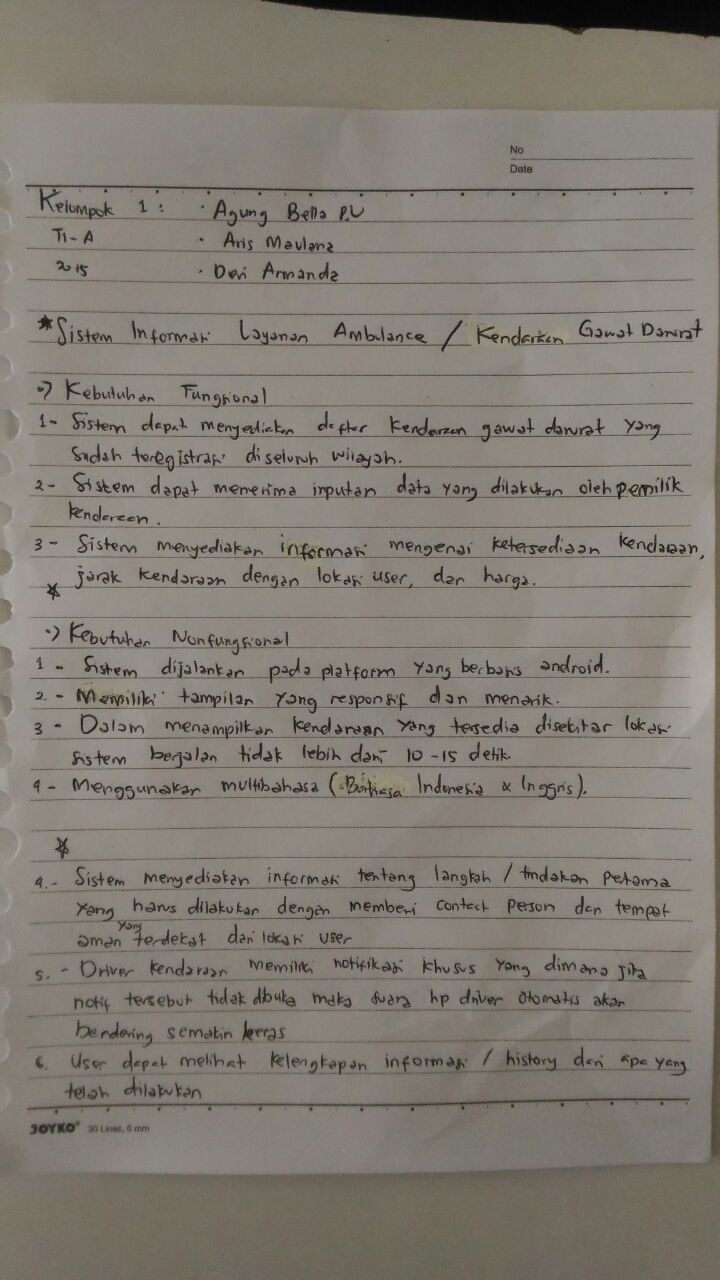 No
Date
Kelompok 1 : · Agung Bella P.U
TI-A · Aris Maulana
2015 · Devi Armanda
*Sistem Informasi Layanan Ambulance / Kendaraan Gawat Darurat
•) Kebutuhan Fungsional
1- Sistem dapat menyediakan daftar kendaraan gawat darurat yang
sudah teregistrasi diseluruh wilayah.
2- Sistem dapat menerima inputan data yang dilakukan oleh pemilik
kendaraan.
3 - Sistem menyediakan informasi mengenai ketersediaan kendaraan,
jarak kendaraan dengan lokasi user, dan harga.
•) Kebutuhan Nonfungsional
1 - Sistem dijalankan pada platform yang berbasis android.
2. - Memiliki tampilan yang responsif dan menarik.
3 - Dalam menampilkan kendaraan yang tersedia disekitar lokasi
sistem berjalan tidak lebih dari 10-15 detik.
4 - Menggunakan multibahasa (Bahasa Indonesia & Inggris).
4.- Sistem menyediakan informasi tentang langkah / tindakan pertama
yang harus dilakukan dengan memberi contact person dan tempat
aman yang terdekat dari lokasi user
5. - Driver kendaraan memiliki notifikasi khusus yang dimana jika
notif tersebut tidak dibuka maka suara hp driver otomatis akan
berdering semakin keras
6. User dapat melihat kelengkapan informasi / history dari apa yang
telah dilakukan
JOYKO 30 Lines, 6 mm